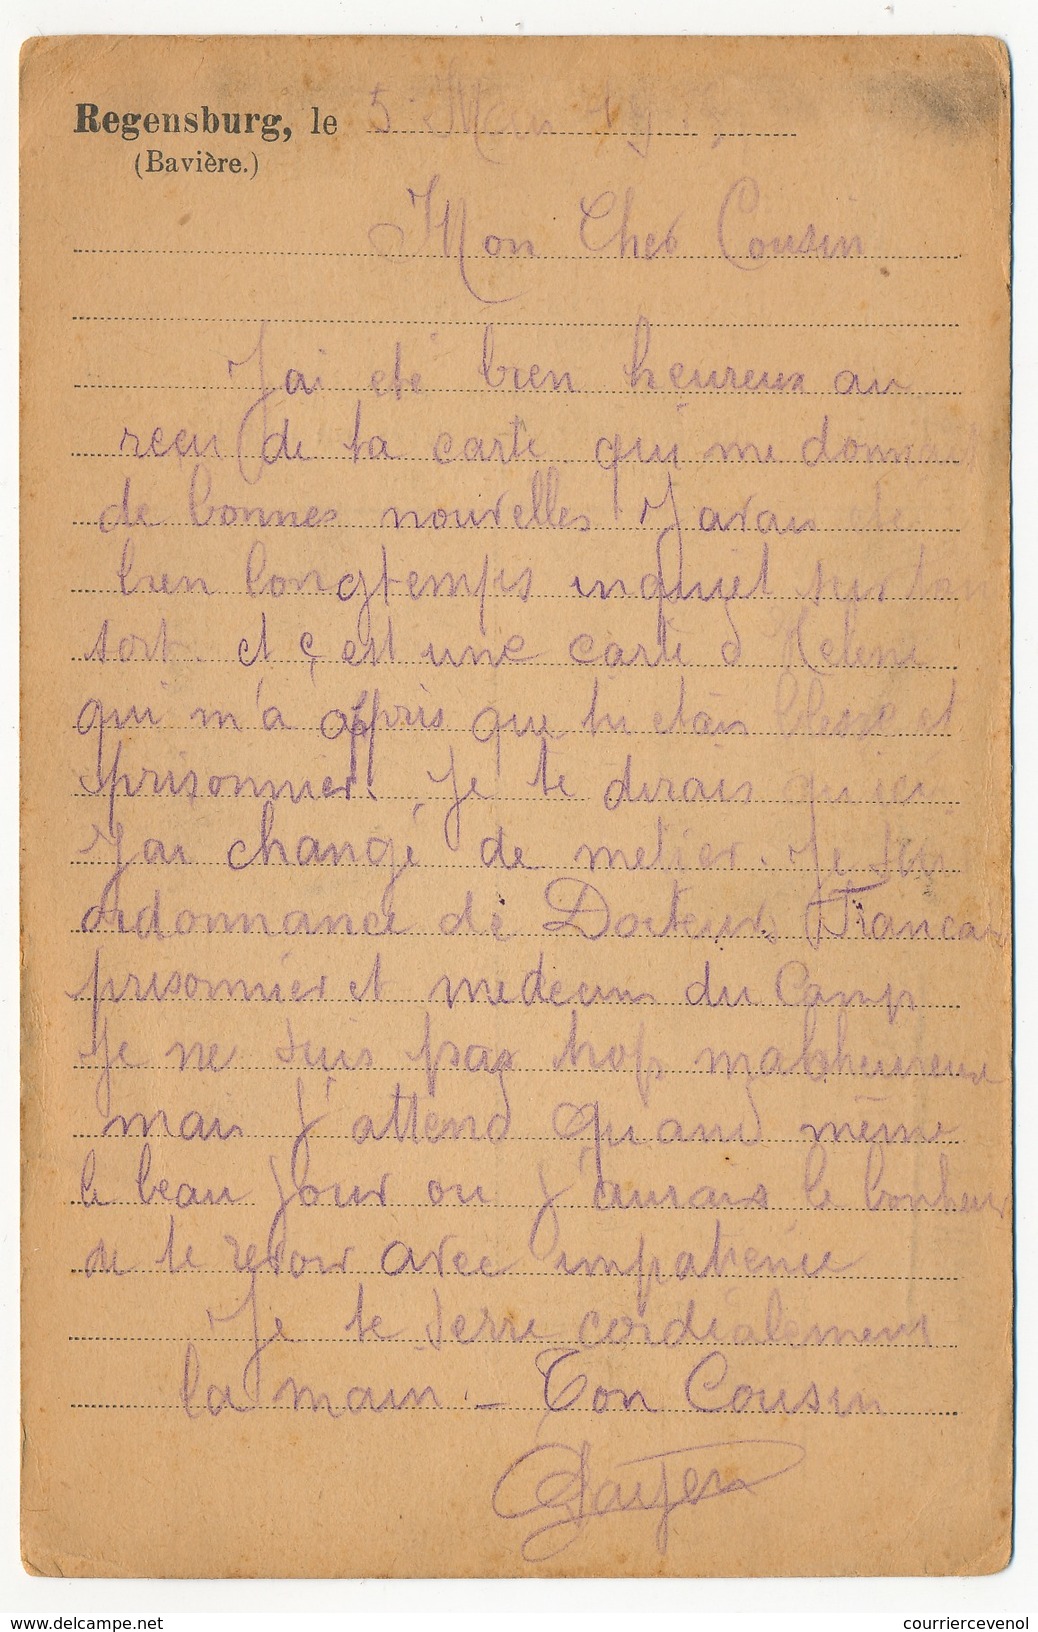 Regensburg, le 5 19
(Bavière.)
Mon Cher Cousin
J'ai eté bien heureux au
reçu de ta carte qui me donnait
de bonnes nouvelles J'avais été
bien longtemps inquiet sur ton
sort. et ç'est une carte d'Helene
qui m'a appris que tu etais blessé et
prisonnier. Je te dirais qu'ici
J'ai changé de metier. Je suis
ordonnance de Docteurs Francais
prisonnier et medecins du Camp
Je ne suis pas trop malheureux
mais j'attend quand même
le beau jour ou j'aurais le bonheur
de te revoir avec impatience
Je te serre cordialement
la main - Ton Cousin
courriercevenol